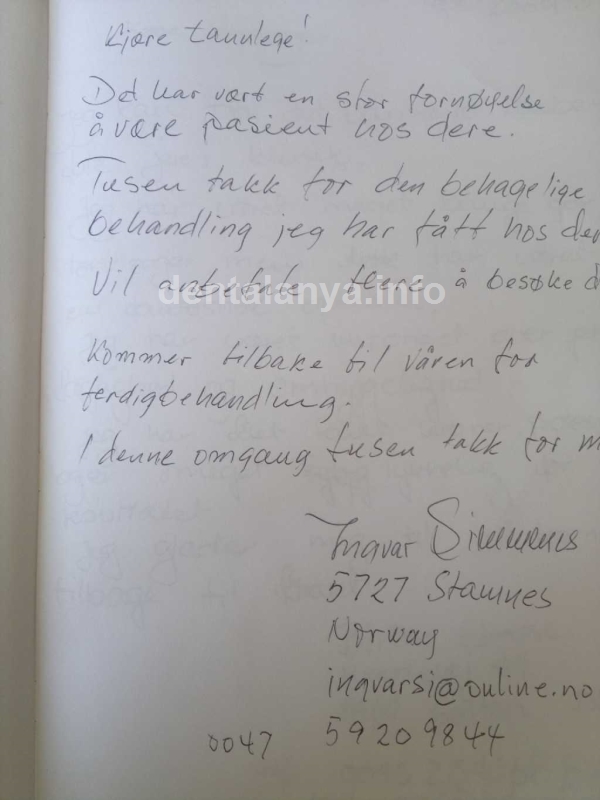 Kjære tannlege!
Det har vært en stor fornøyelse
å være pasient hos dere.
Tusen takk for den behagelige
behandling jeg har fått hos der
Vil anbefale flere å besøke d
dentalanya.info
Kommer tilbake til våren for
ferdigbehandling.
I denne omgang tusen takk for m
Ingvar
5727 Stamnes
Norway
ingvarsi@online.no
0047 59209844